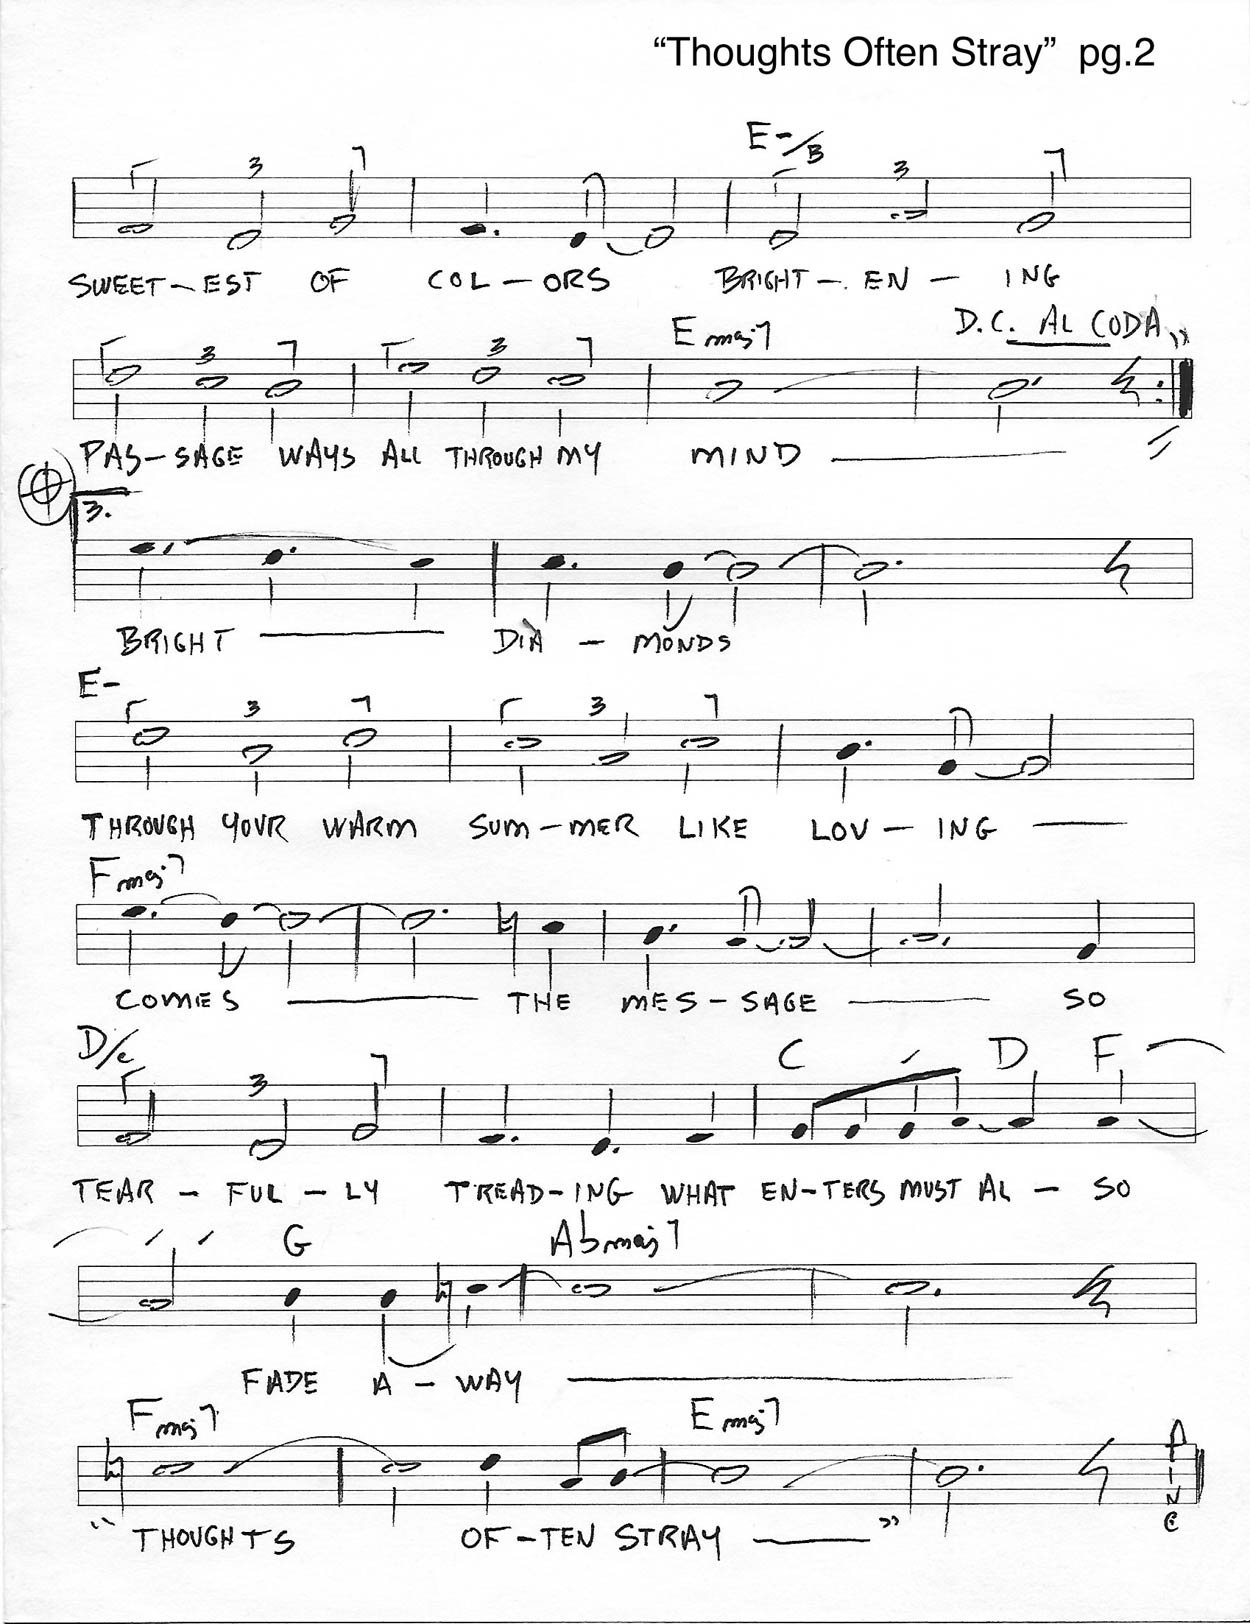 “Thoughts Often Stray” pg.2
E-/B
3 3
SWEET-EST OF COL-ORS BRIGHT-EN-ING
D.C. AL CODA
Emaj7
3 3
PAS-SAGE WAYS ALL THROUGH MY MIND
3.
BRIGHT DIA-MONDS
E-
3 3
THROUGH YOUR WARM SUM-MER LIKE LOV-ING
Fmaj7
COMES THE MES-SAGE SO
D/C C D F
3
TEAR-FUL-LY TREAD-ING WHAT EN-TERS MUST AL-SO
G Abmaj7
FADE A-WAY
Fmaj7 Emaj7
FINE
“THOUGHTS OF-TEN STRAY”